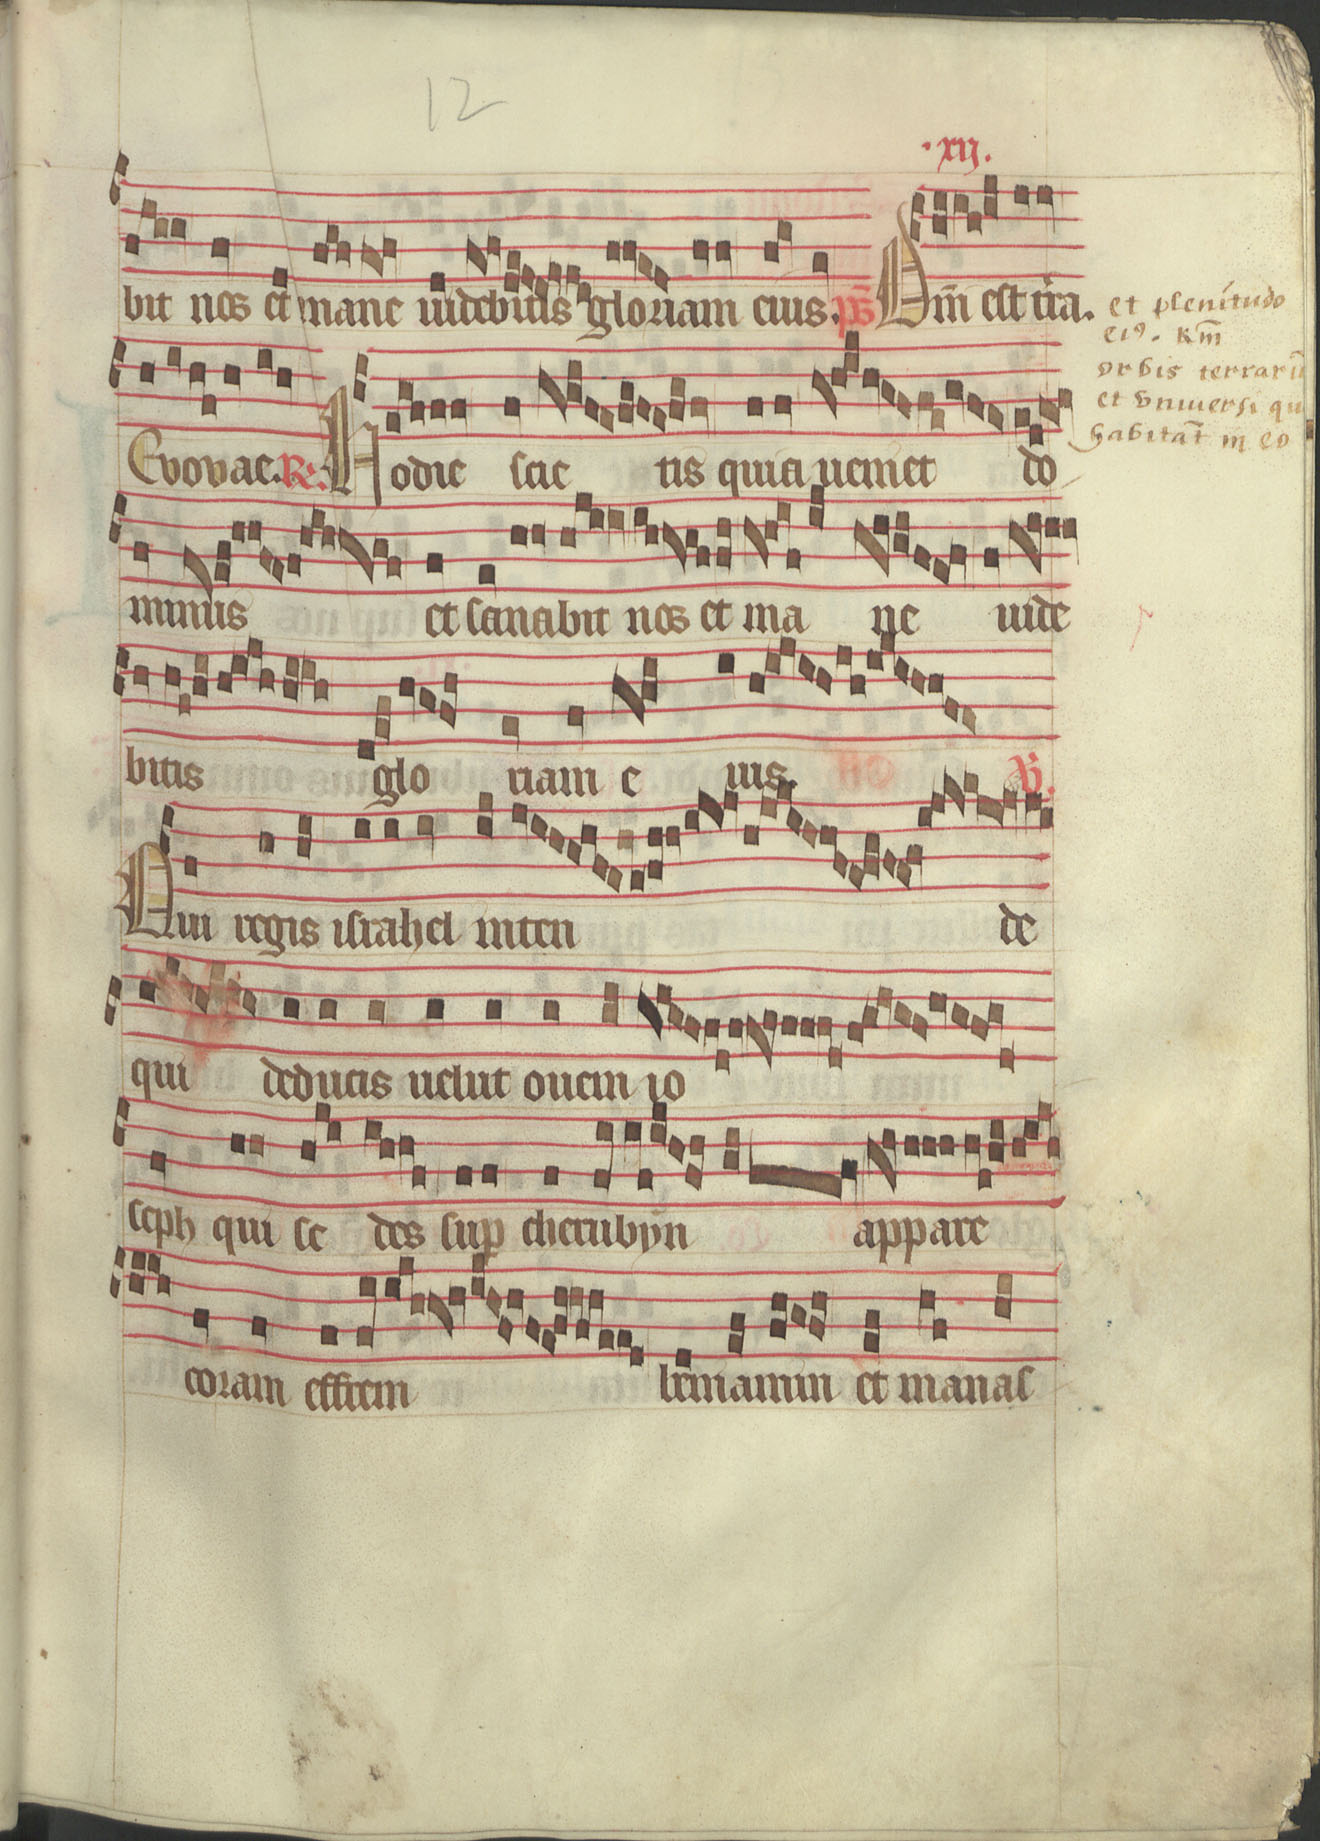 12
·xij.
bit nos et mane uidebitis gloriam eius. p̄s Dn̄i est t̄ra.
et plenitudo
ei9. km̄
orbis terrarū
et vniuersi qui
habitāt in eo
Evovae. R. Hodie scie tis quia ueniet do
minus et sanabit nos et ma ne uide
bitis glo riam e ius. V.
Qui regis israhel inten de
qui deducis uelut ouem io
seph qui se des sup cherubyn appare
coram effrem beniamin et manas